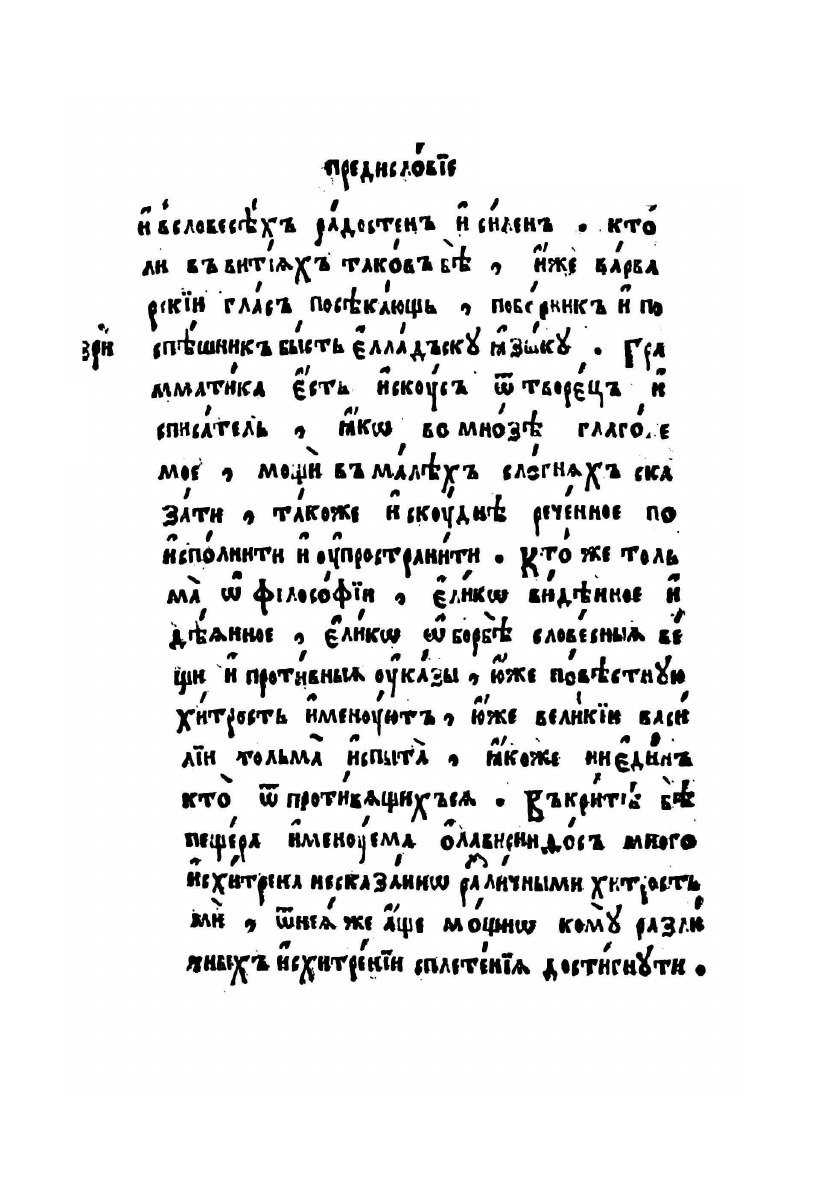 предисло́вїе
и҆ всловесѣ́хъ ра́достенъ и҆ си́ленъ . кто́
ли въвитїѧхъ тако́въ бѣ̀ , и҆́же ва́рва
рскїи гла́съ посѣка́ющь , побо́рникъ и҆ по
зрѝ
спѣ́шникъ бы́сть є҆лла́дъскꙋ ѧ҆зы́кꙋ . Гра
мматі́ка є҆́сть и҆скоу́съ ѿ творе́цъ и҆
списа́тель , ꙗ҆́кѡ во мно́зѣ глаго́ле
мое , мощѝ въма́лѣхъ сло́гнѧхъ ска
за́ти , та́коже и҆ скоу́днѣ рече́нное по
и҆спо́лнити и҆ оу҆простра́нити . Кто́ же толь
ма̀ ѿ фїлосо́фїи , є҆ли́кѡ ви́дѣнное и҆
дѣ́ѧнное , є҆ли́кѡ ѿ борбѣ̀ слове́сныѧ ве́
щи и҆ проти́вныѧ оу҆ка́зы , ю҆́же по́вѣстную
хи́трость и҆менꙋ́ютъ , ю҆́же вели́кїи васи́
лїи тольма̀ и҆спыта̀ , ꙗ҆́коже ниє҆ди́нъ
кто̀ ѿ проти́вѧщихъсѧ . Въкри́тїѣ бѣ̀
пеще́ра и҆меноу́ема ѻ҆лавиринѳдо́съ много
и҆схи́трена несказа́ннѡ ра́личными хи́трость
мѝ , ѿнеѧ́ же а҆́ще мо́щнѡ комꙋ̀ разли́
чныхъ и҆схитре́нїи сплете́нїѧ дости́гнꙋти .